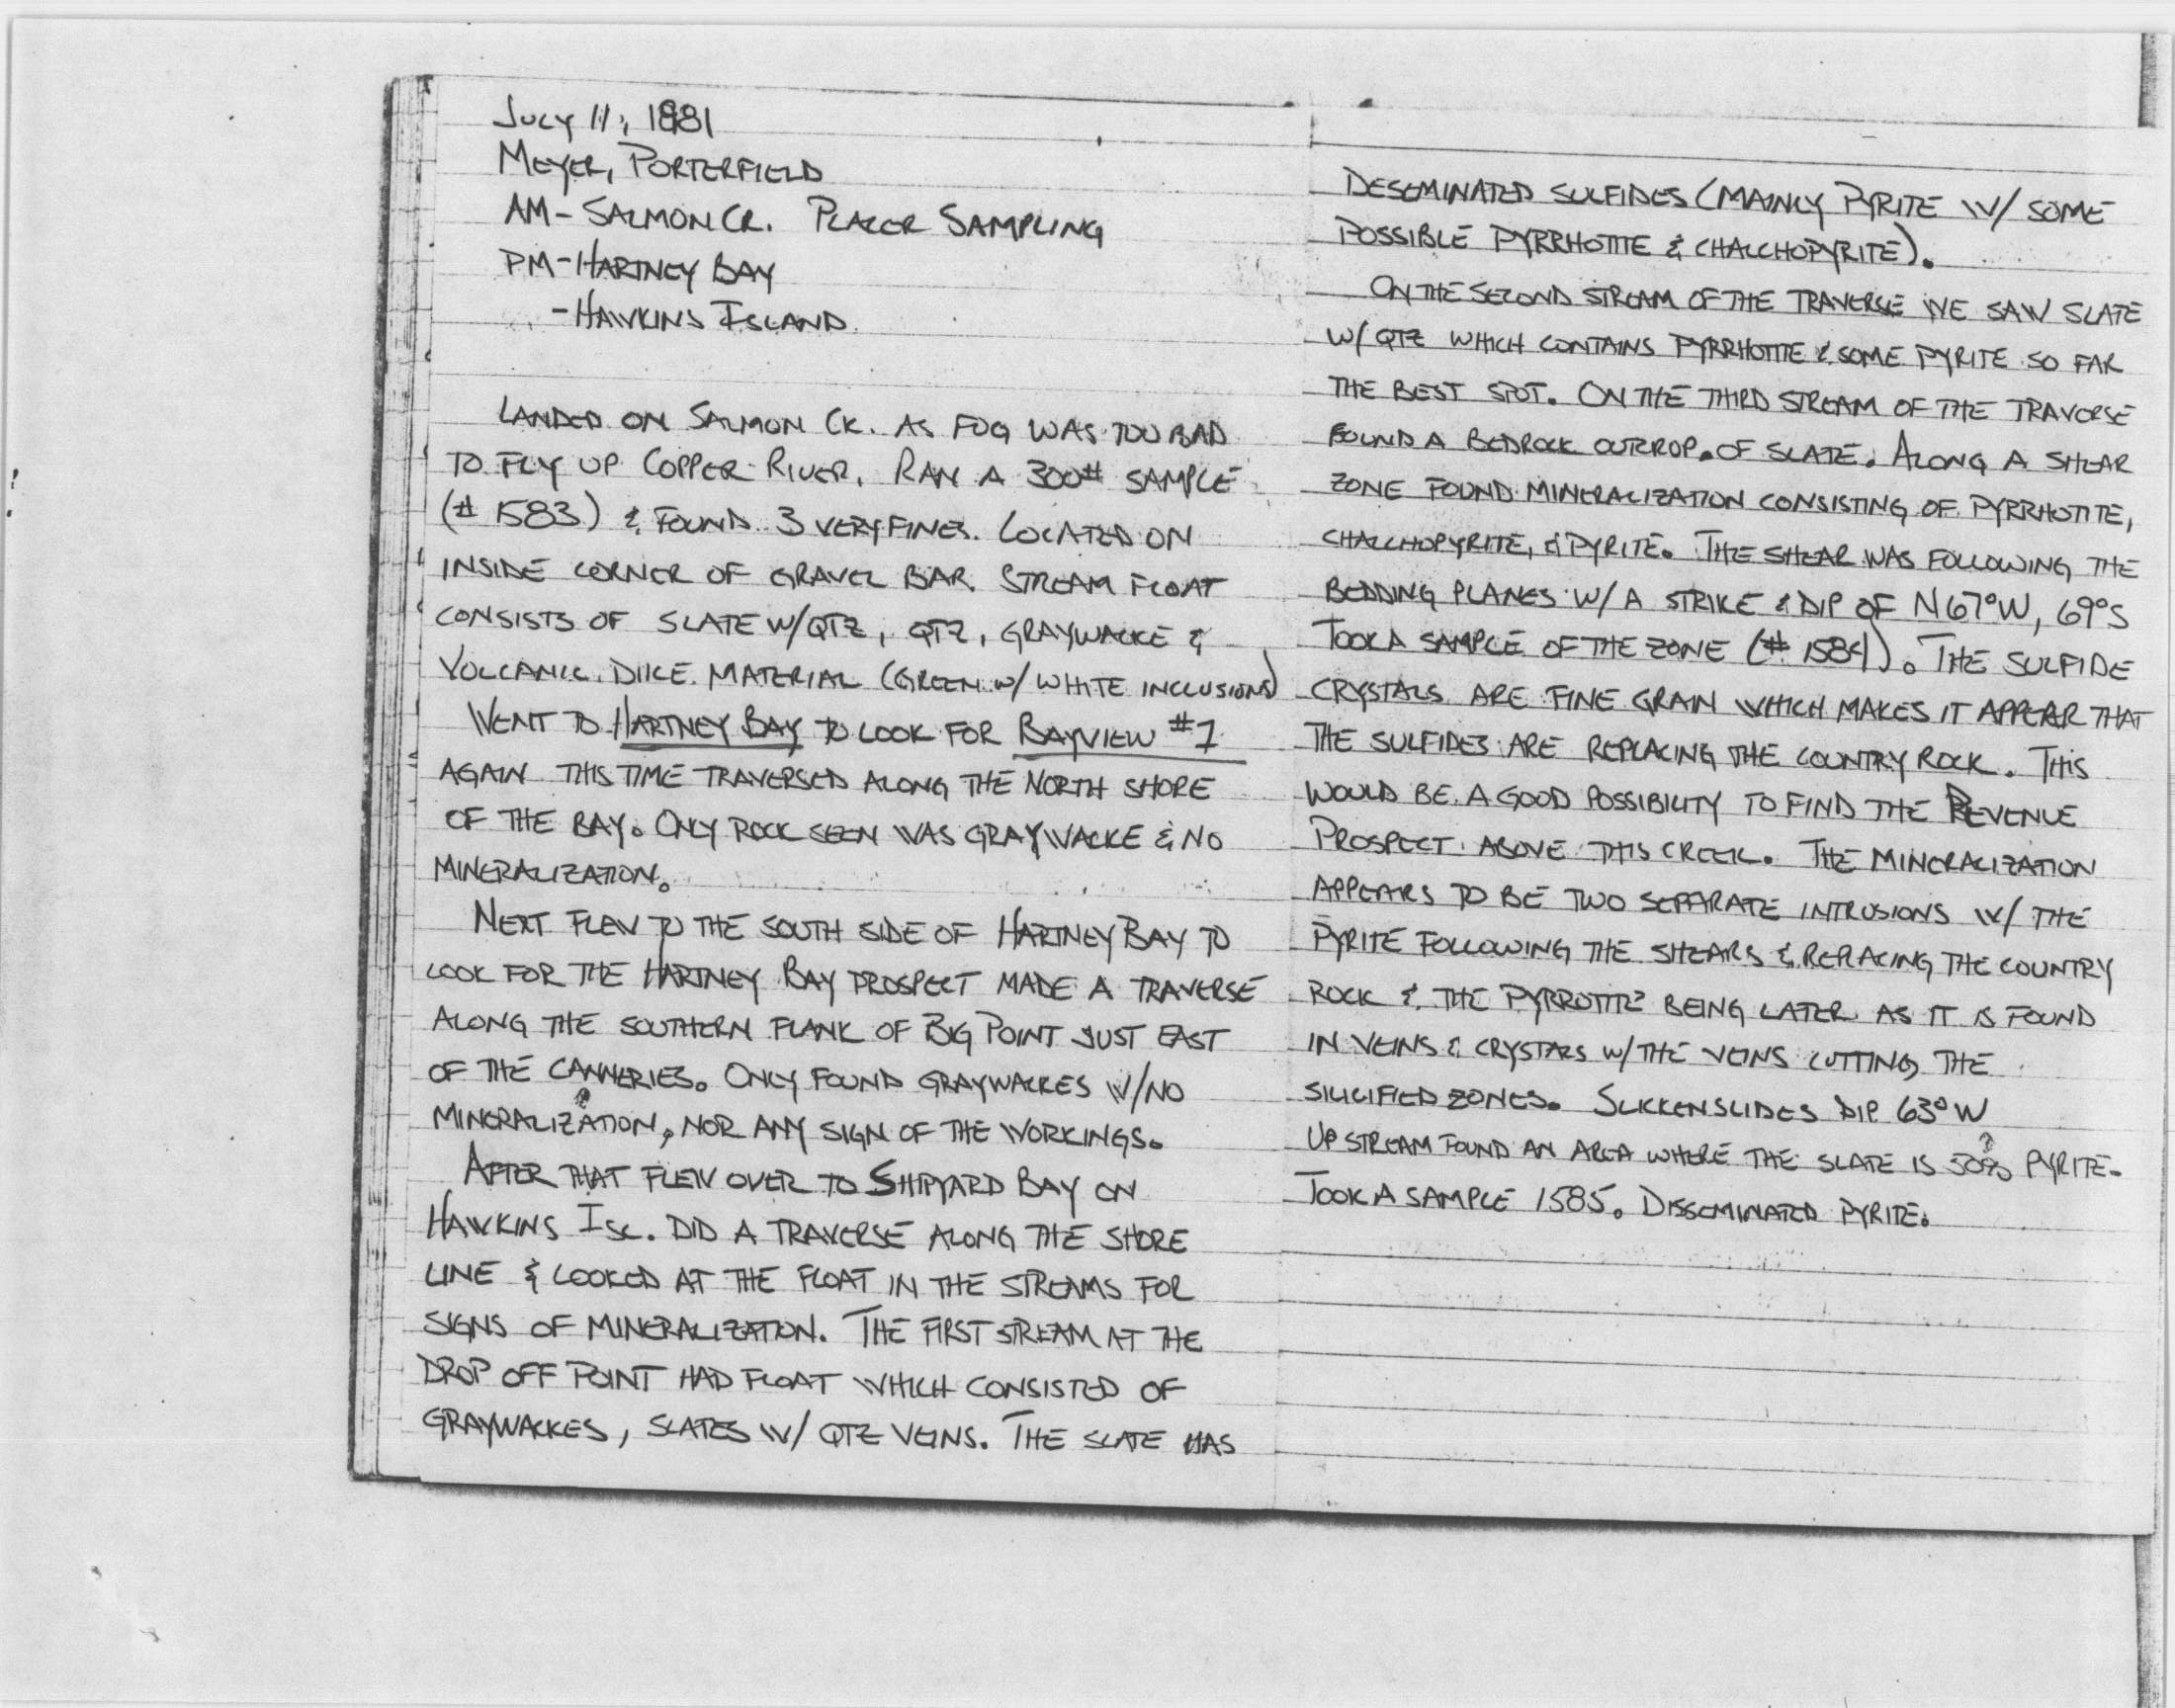 July 11, 1981
Meyer, Porterfield
AM - Salmon Cr. Placer Sampling
PM - Hartney Bay
- Hawkins Island.
Landed on Salmon Ck. as fog was too bad
to fly up Copper River. Ran a 300# sample
(# 1583) & found 3 very fines. Located on
inside corner of gravel bar. Stream float
consists of slate w/qtz, qtz, graywacke &
volcanic dike material (green w/ white inclusions)
Went to Hartney Bay to look for Bayview #1
again this time traversed along the north shore
of the bay. Only rock seen was graywacke & no
mineralization.
Next flew to the south side of Hartney Bay to
look for the Hartney Bay prospect made a traverse
along the southern flank of Big Point just east
of the canneries. Only found graywackes w/no
mineralization, nor any sign of the workings.
After that flew over to Shipyard Bay on
Hawkins Isl. did a traverse along the shore
line & looked at the float in the streams for
signs of mineralization. The first stream at the
drop off point had float which consisted of
graywackes, slates w/ qtz veins. The slate has
deseminated sulfides (mainly pyrite w/ some
possible pyrrhotite & chalchopyrite).
On the second stream of the traverse we saw slate
w/ qtz which contains pyrrhotite & some pyrite so far
the best spot. On the third stream of the traverse
found a bedrock outcrop. of slate. Along a shear
zone found mineralization consisting of pyrrhotite,
chalchopyrite, & pyrite. The shear was following the
bedding planes w/ a strike & dip of N67°W, 69°S
Took a sample of the zone (# 1584). The sulfide
crystals are fine grain which makes it appear that
the sulfides are replacing the country rock. This
would be a good possibility to find the Revenue
Prospect above this creek. The mineralization
appears to be two separate intrusions w/ the
pyrite following the shears & replacing the country
rock & the pyrrotite being later as it is found
in veins & crystals w/the veins cutting the
silicified zones. Slickenslides dip 63°W
Up stream found an area where the slate is 50%? pyrite.
Took a sample 1585. Disseminated pyrite.